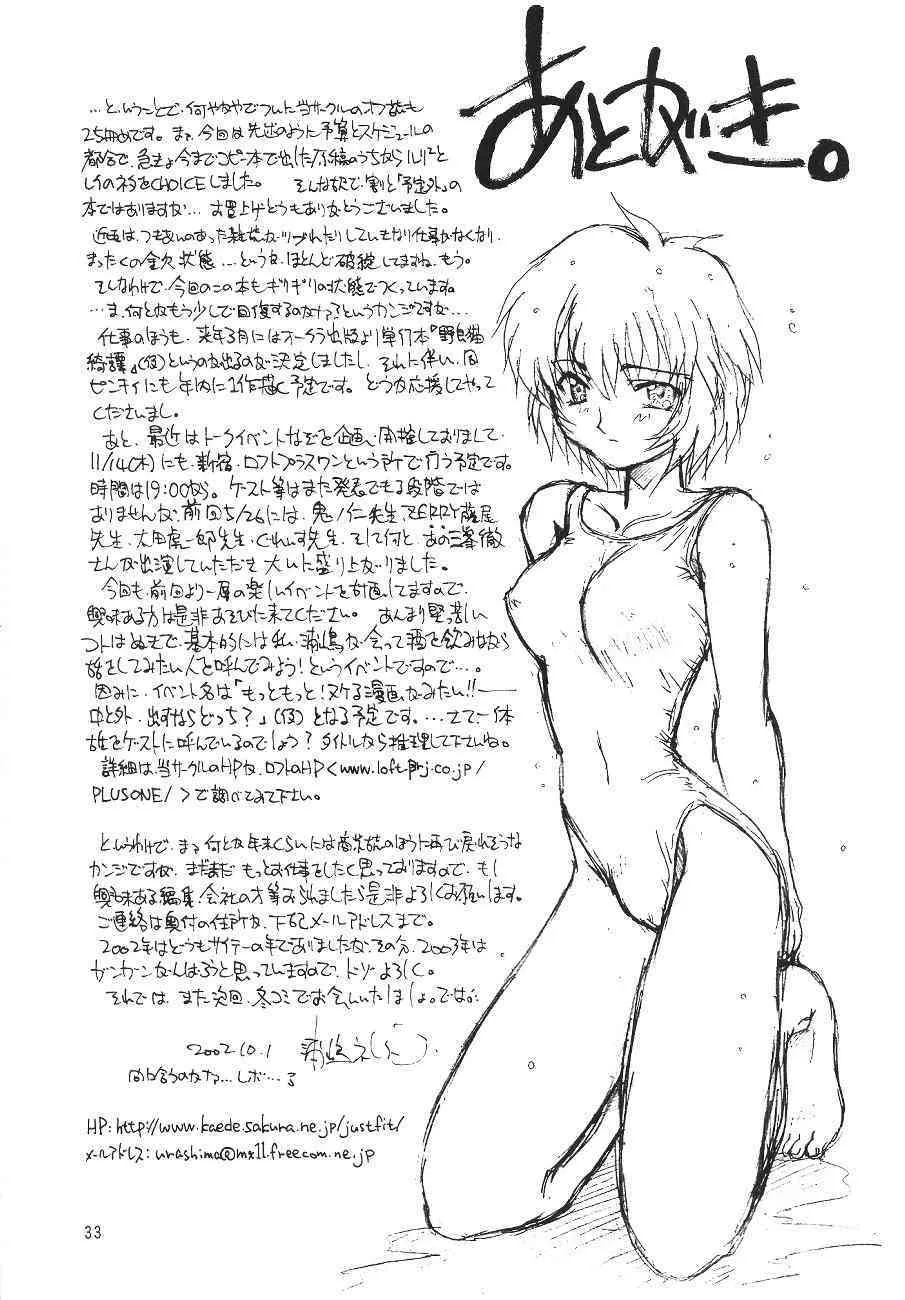 あとがき。
…ということで、何やかやでついに当サークルのオフ誌も
25冊めです。まぁ、今回は先述のように予算とスケジュールの
都合で、急きょ今までコピー本で出した原稿のうちからルリ²と
レイのネタをCHOICEしました。 そんな訳で、割と「予定外」の
本ではありますが… お買上げどうもありがとうございました。
近況は、つきあいのあった雑誌がツブれたりしていきなり仕事がなくなり、
まったくの金欠状態…というか、ほとんど破綻してますね、もう。
そんなわけで、今回のこの本もギリギリの状態でつくっていますね。
…ま、何とかもう少しで回復するのかなァというカンジですが…
仕事のほうも、来年3月にはオークラ出版より単行本『野良猫
綺譚』(仮)というのが出るのが決定しましたし、それに伴い、同
センチイにも年内に1作描く予定です。どうか応援してやって
くださいまし。
あと、最近はトークイベントなぞを企画・開催しておりまして、
11/14(木)にも、新宿・ロフトプラスワンという所で行う予定です。
時間は19:00から。ゲスト等はまだ発表できる段階では
ありませんが、前回5/26には、鬼ノ仁先生、ZERRY藤尾
先生、大田虎一郎先生、くれいす先生、そして何と、あの三峯徹
さんが出演していただき大いに盛り上がりました。
今回も前回より一層の楽しいイベントを計画してますので、
興味ある方は是非あそびに来てください。あんまり堅苦しい
コトはぬきで、基本的には私・浦嶋が会って酒を飲みながら
話をしてみたい人を呼んでみよう！というイベントですので…。
因みに、イベント名は「もっともっと！ヌケる漫画がみたい!!――
中と外、出すならどっち？」(仮)となる予定です。…さて、一体
誰をゲストに呼んでいるのでしょう？タイトルから推理して下さいね。
詳細は、当サークルのHPか、ロフトのHP<www.loft-prj.co.jp/
PLUSONE/>で調べてみて下さい。
というわけで、まァ何とか年末くらいには商業誌のほうに再び戻れそうな
カンジですが、まだまだもっとお仕事をしたく思っておりますので、もし
興味ある編集・会社の方等おられましたら是非よろしくお願いします。
ご連絡は奥付の住所か、下記メールアドレスまで。
2002年はどうもサイテーの年でありましたが、その分、2003年は
ガンガンがんばろうと思っていますので、ドゾよろしく。
それでは、また次回、冬コミでお会いいたしましょ。では。
2002.10.1
HP: http://www.kaede.sakura.ne.jp/justfit/
メールアドレス: urashima@mx11.freecom.ne.jp
33